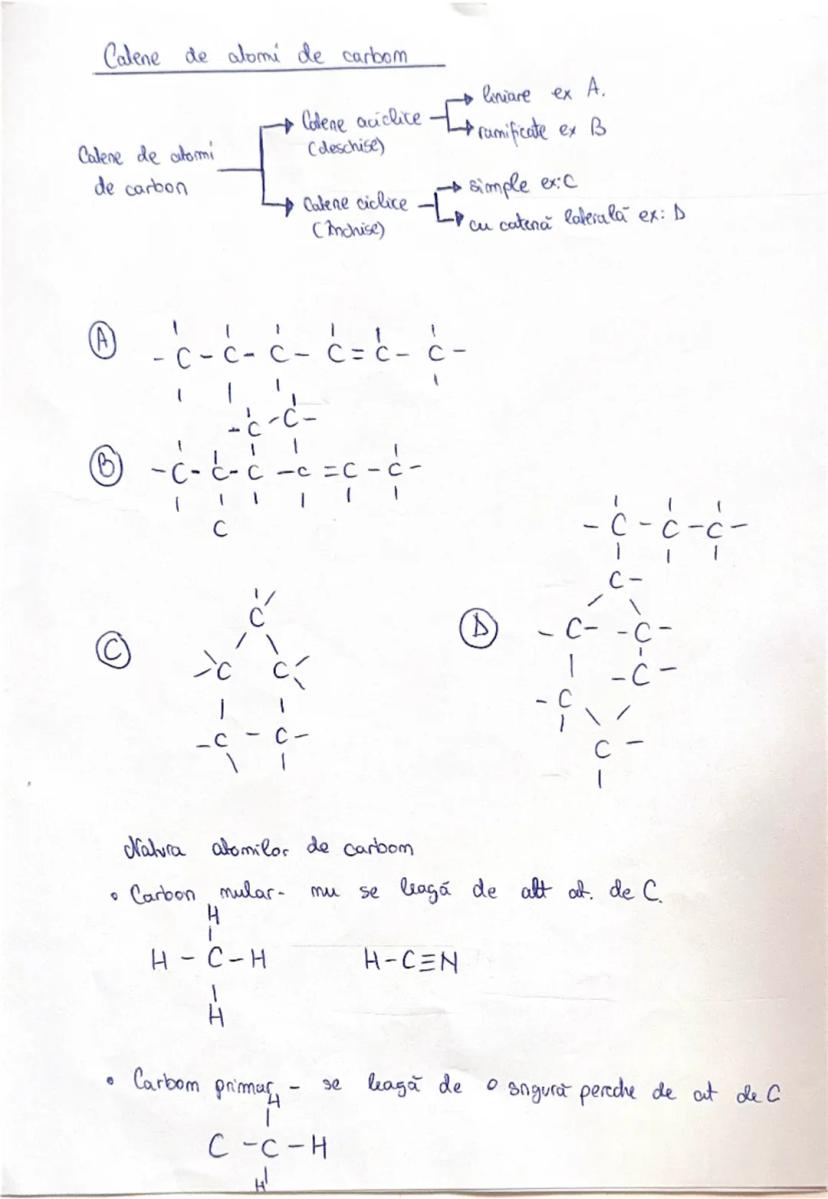 Catene de atomi de carbom
Catene de atomi
de carbon
Catene aciclice
(deschise)
liniare ex A.
ramificate ex B
Catene ciclice
(Închise)
simple ex:C
cu catenă laterală ex: D
A
- C - C - C - C = C - C -
- C - C -
B
- C - C - C - C = C - C -
C
- C - C - C -
C -
C
C
C C
- C - C -
D
- C - - C -
- C -
- C
C -
Natura atomilor de carbom
• Carbon nular - nu se leagă de alt at. de C.
H
H - C - H H-C≡N
H
• Carbom primar - se leagă de o singură perche de at de C
H
C - C - H
H